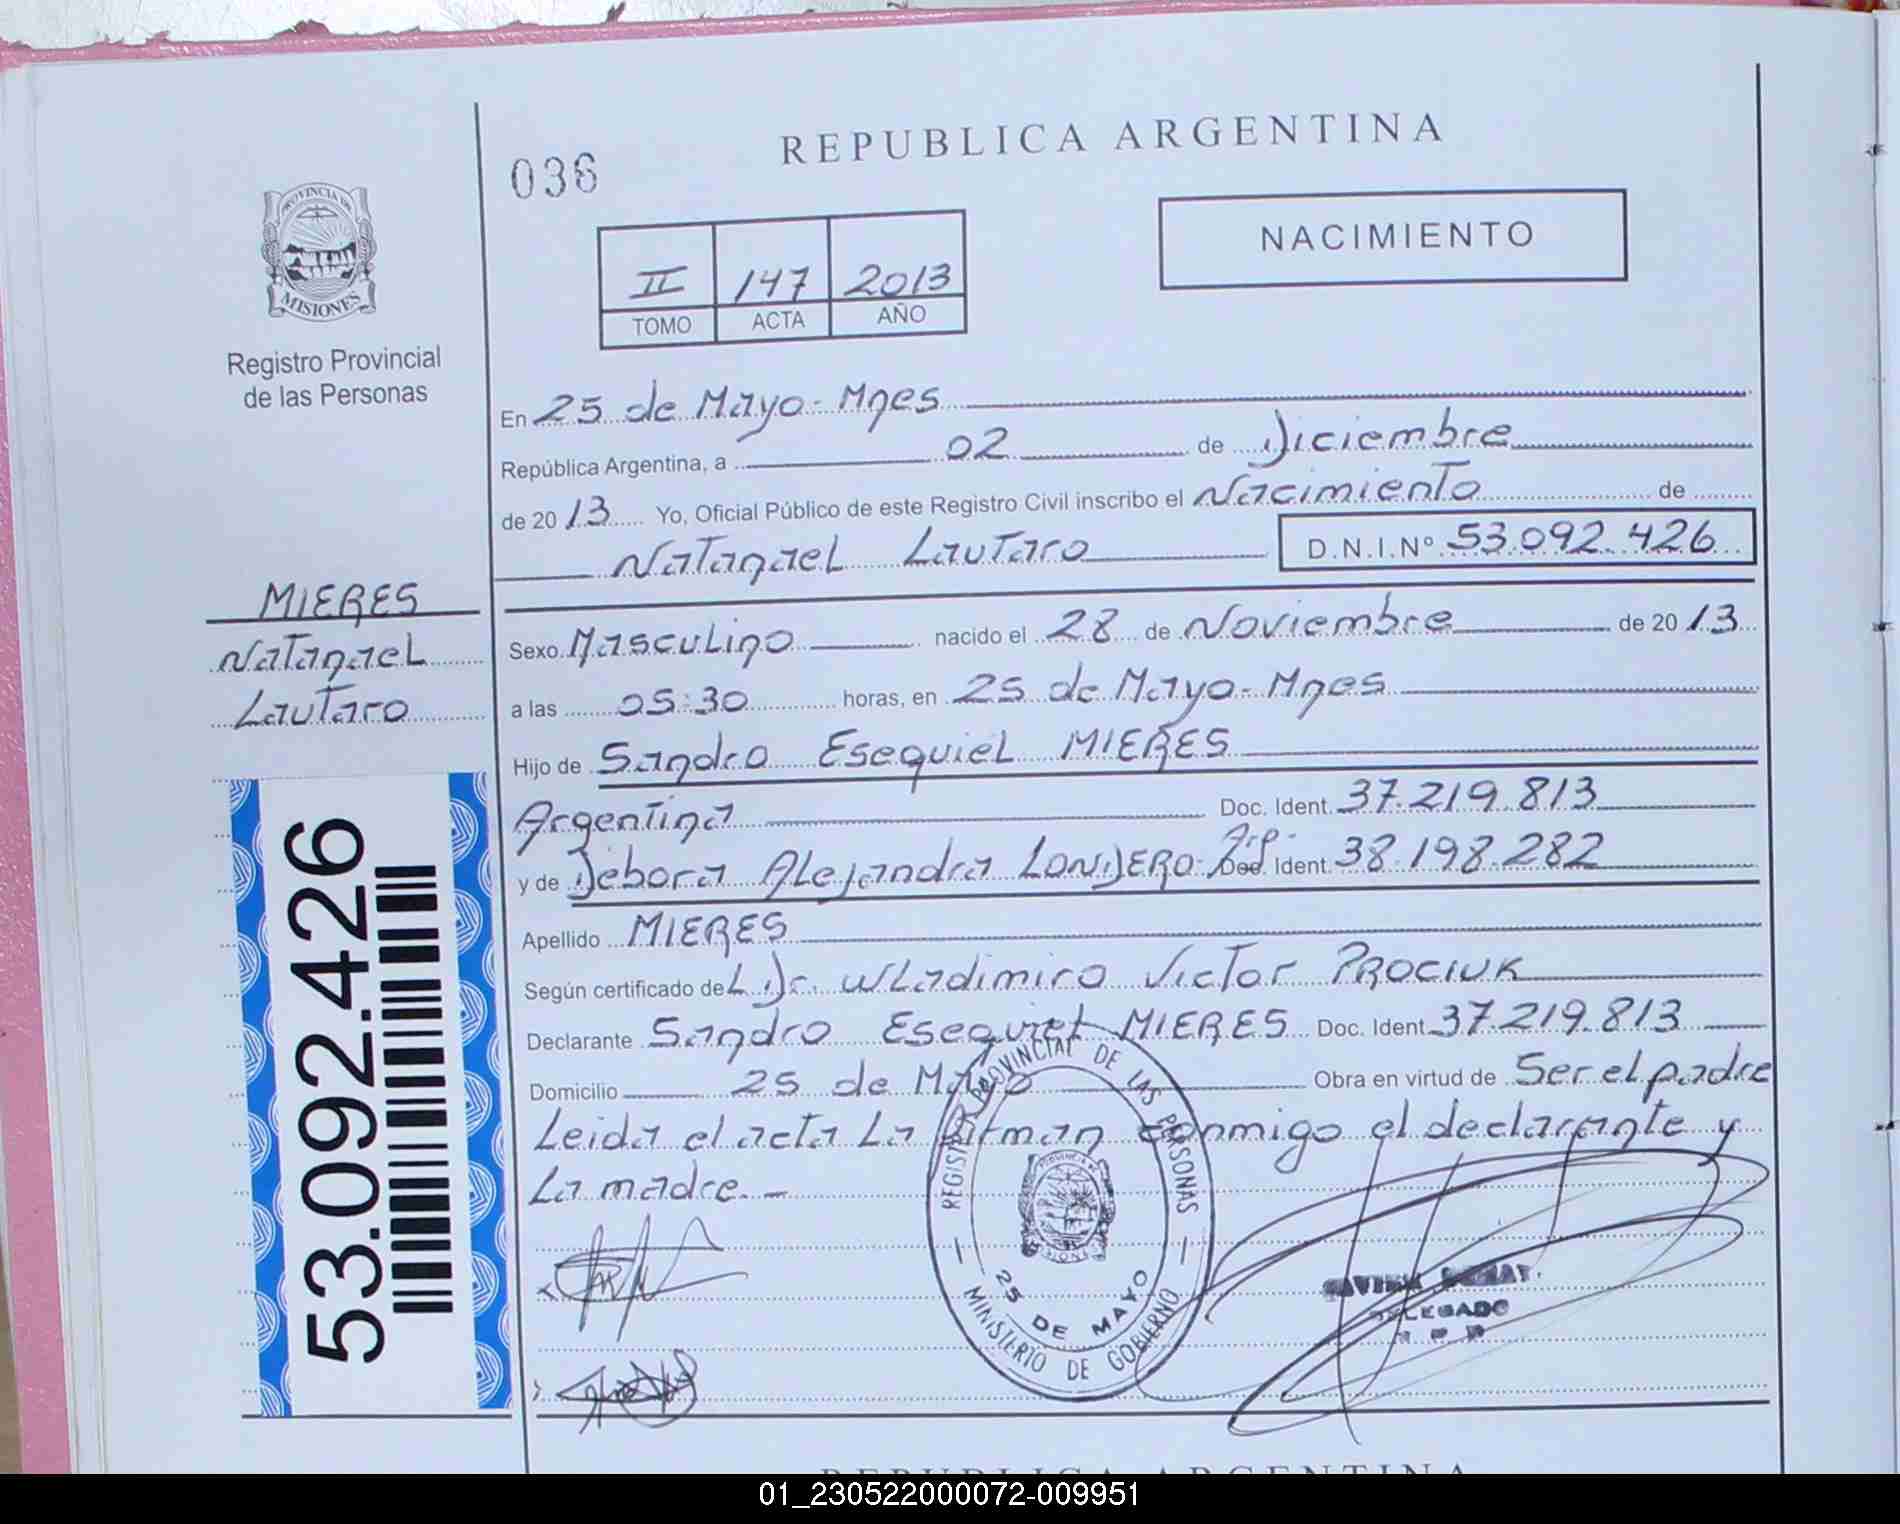 REPUBLICA ARGENTINA
036
NACIMIENTO
II 147 2013
TOMO ACTA AÑO
PROVINCIA DE
MISIONES
Registro Provincial
de las Personas
En 25 de Mayo - Mnes
República Argentina, a 02 de Diciembre
de 2013 Yo, Oficial Público de este Registro Civil inscribo el Nacimiento de
Natanael Lautaro D.N.I.Nº 53.092.426
MIERES
Natanael
Lautaro
53.092.426
Sexo Masculino nacido el 28 de Noviembre de 2013
a las 05:30 horas, en 25 de Mayo - Mnes
Hijo de Sandro Esequiel MIERES
Argentina Doc. Ident. 37.219.813
y de Debora Alejandra LONDERO Arg. Doc. Ident. 38.198.282
Apellido MIERES
Según certificado del Dr. Wladimiro Victor PROCIUK
Declarante Sandro Esequiel MIERES Doc. Ident. 37.219.813
Domicilio 25 de Mayo Obra en virtud de Ser el padre
Leida el acta La firman conmigo el declarante y
La madre. -
REGISTRO PROVINCIAL DE LAS PERSONAS
25 DE MAYO
MINISTERIO DE GOBIERNO
DELEGADO
REPUBLICA ARGENTINA
01_230522000072-009951